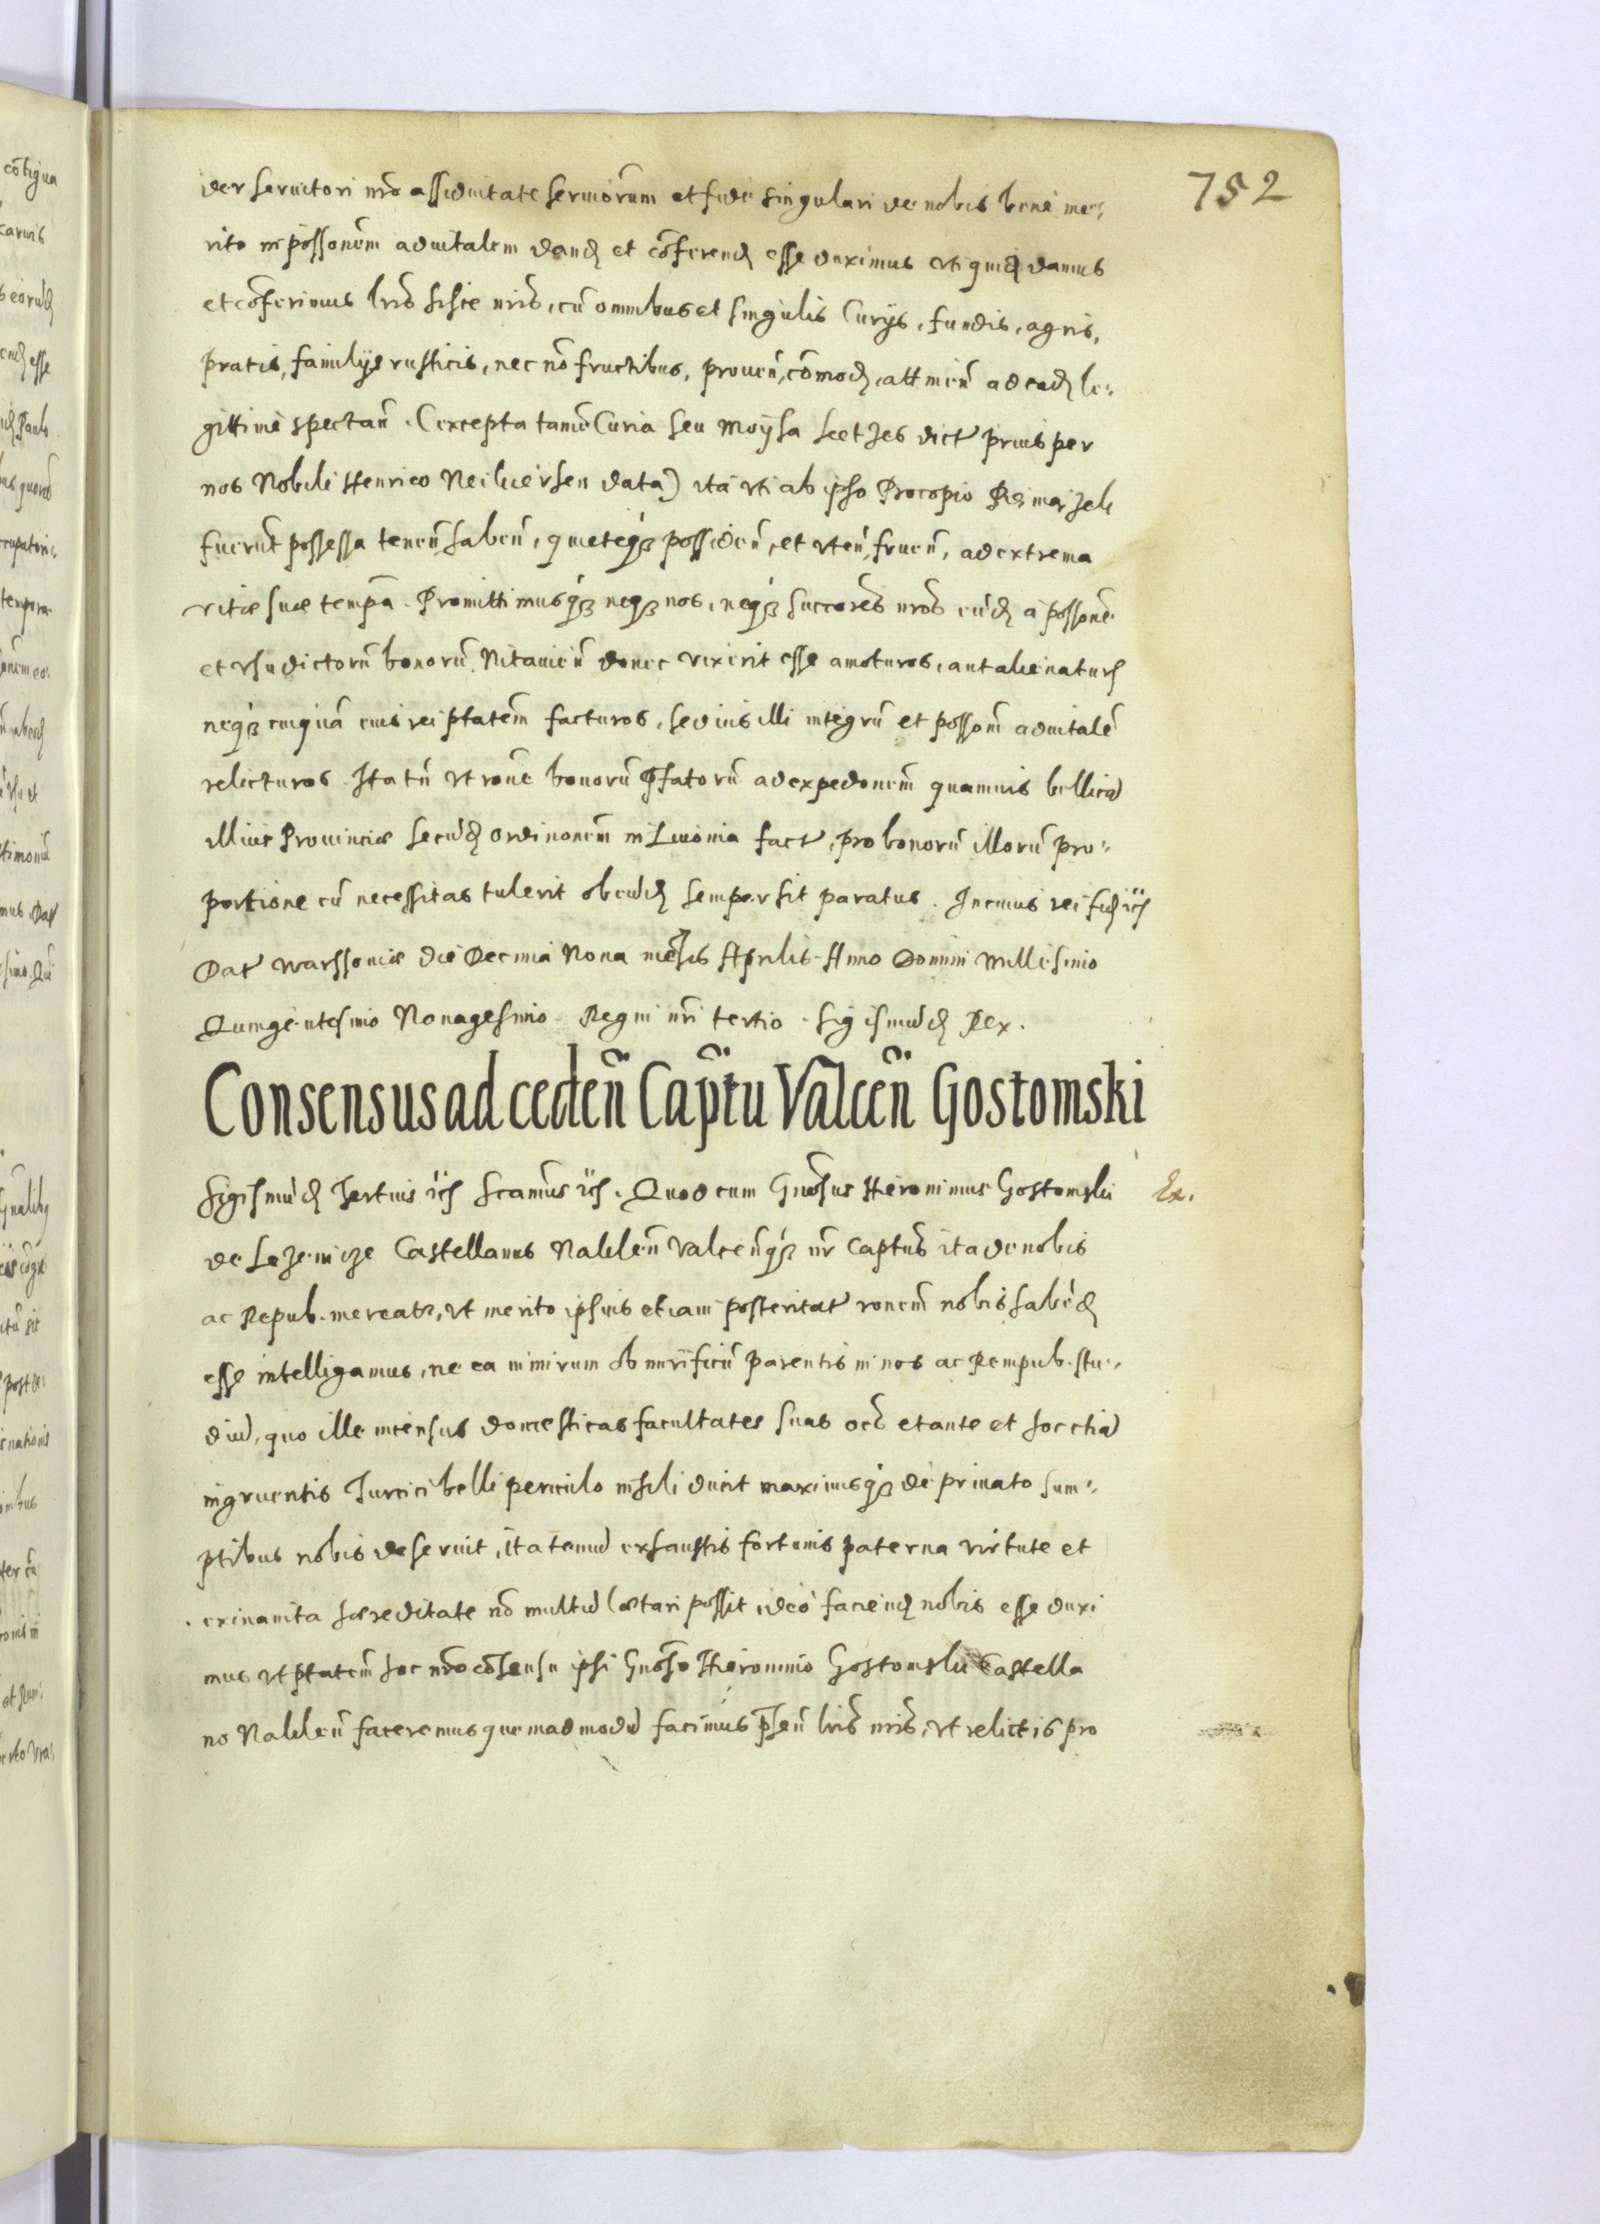 752
der servitori nro assiduitate serviorum et fide singulari de nobis bene me:
rito in possonem aduitalem dand et coferend esse duximus uti quid damus
et coferimus lris hisce nris, cu omnibus et singulis Curijs, fundis, agris,
pratis, familijs rusticis, nec no fructibus, prouen, comod, attinen ad ead le:
gittime spectan. (excepta tamen Curia seu Moysa dict prius per
nos Nobili Henrico data) ita uti ab ipso Procopio
fuerut possessa tenen, haben, quieteq possiden, et uten, fruen, ad extrema
vitæ suæ tempa. Promittimusq neq nos, neq succores nros eud a possone
et usu dictoru bonoru Nitauien donec vixerit esse amoturos, aut alienaturs
neq cuiqua eius rei ptatem facturos, sed ius illi integru et possonem aduitale
relicturos. Ita tn ut rone bonoru pfatoru ad expedonem quamuis bellica
illius Prouinciæ secud ordinonem in Liuonia fact, pro bonoru illoru pro:
portione cu necessitas tulerit obeud semper sit paratus. In cuius rei fid
Dat Warssouiæ die Decima Nona mesis Aprilis. Anno Domini Millesimo
Quingentesimo Nonagesimo Regni nri tertio. Sigismud Rex.
Consensus ad ceden Captu Valcen Gostomski
Ex.
Sigismud Tertius Scamus. Quod cum Gnosus Hieronimus Gostomski
de Lezenicze Castellanus Naklen Valcenq nr Captus ita de nobis
ac Repub. mereat, ut merito ipsius etiam posteritat ronem nobis habed
esse intelligamus, ne ea nimirum ob mirificu parentis in nos ac Rempub. stu:
diu, quo ille incensus domesticas facultates suas et ante et hoc etia
ingruentis Turcici belli periculo nihili ducit maximisq de priuato sum:
ptibus nobis deseruit, ita tenui exhaustis fortunis paterna virtute et
exinanita hæreditate no multu lætari possit, ideo faciend nobis esse duxi
mus ut ptatem hoc nro cosensu ipsi Gnoso Hieronimo Gostomski Castella
no Naklen faceremus quemadmodu facimus psen lris nris, ut relictis pro